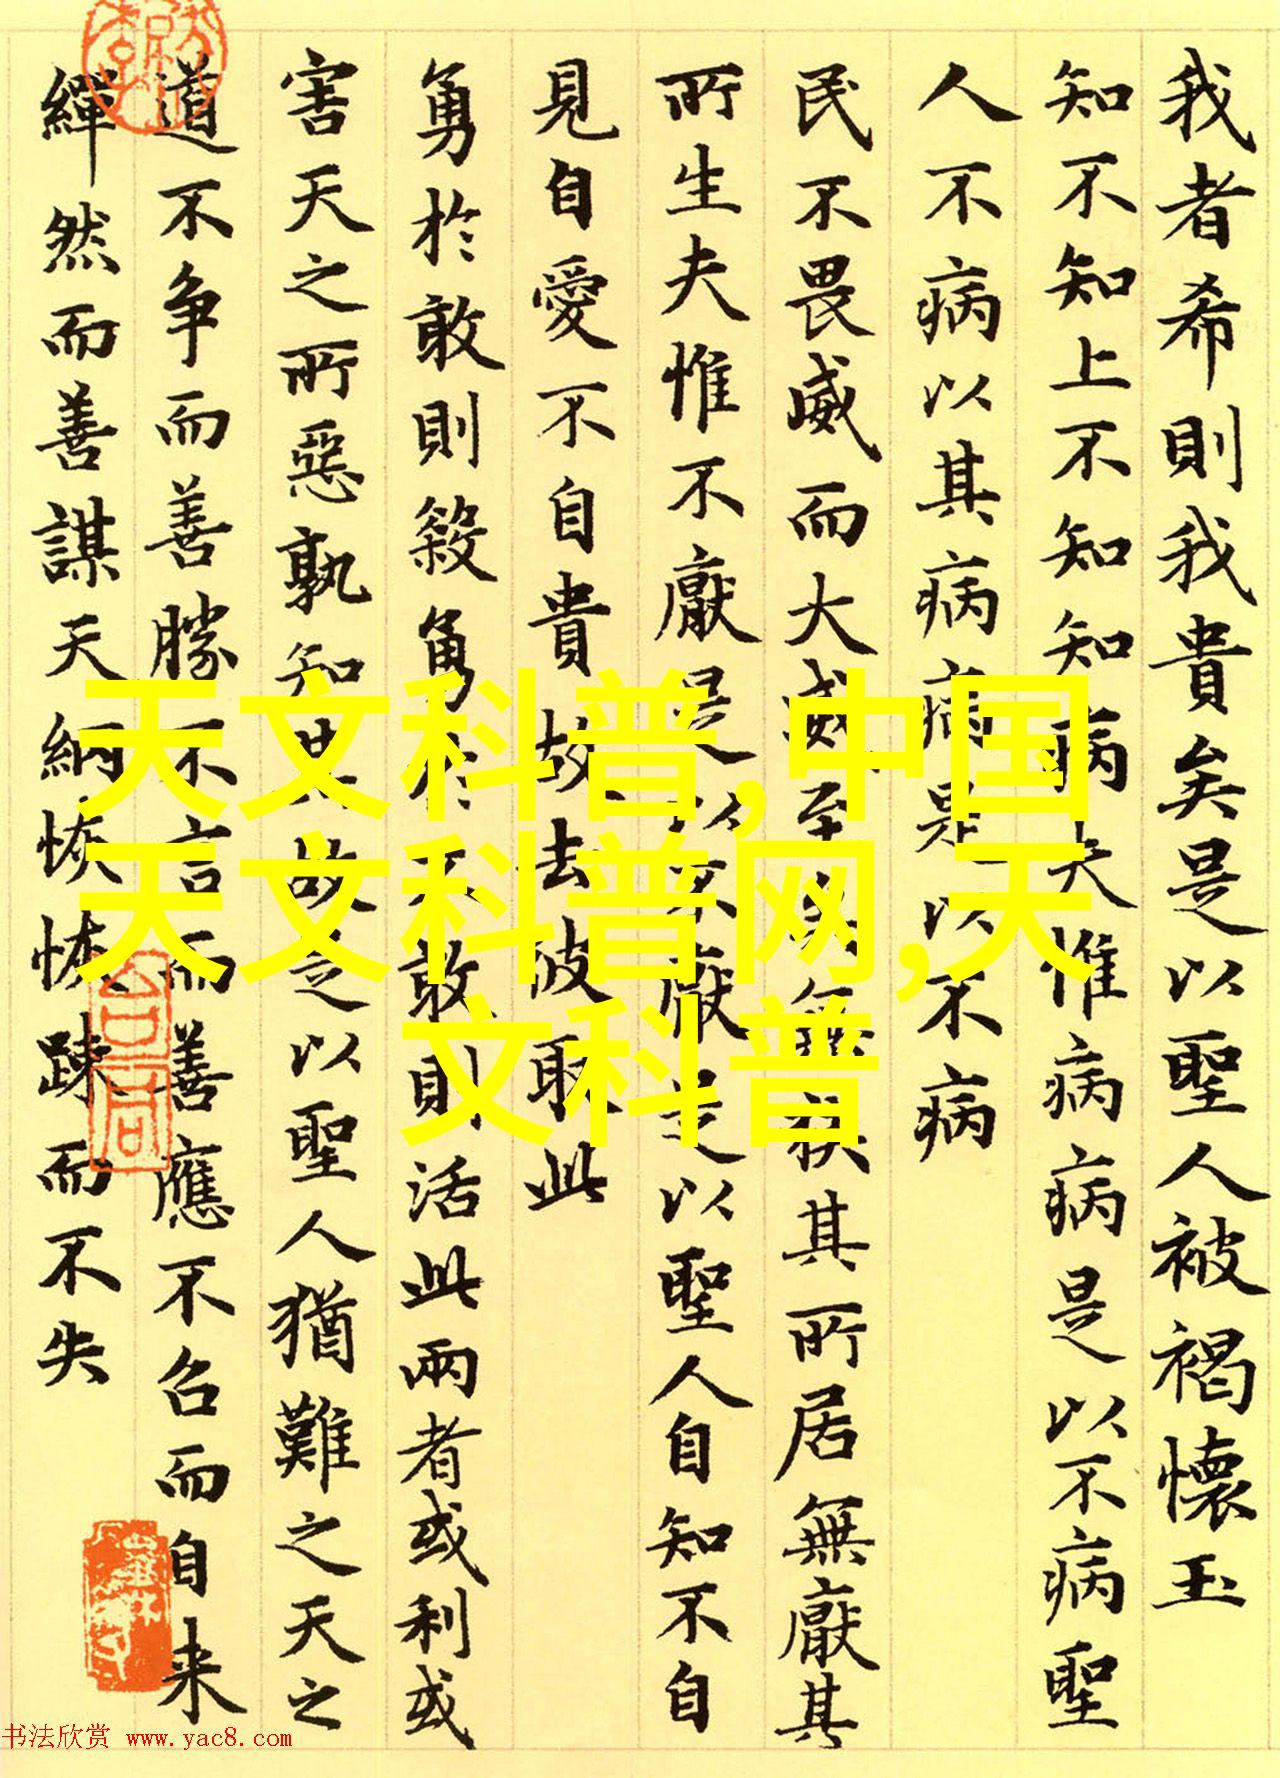 我者希則我貴矣是以聖人被褐懷玉
知不知上不知知病夫惟病病是以不病聖
人不病以其病病是以不病
民不畏威而大威至矣無狭其所居無厭其
所生夫惟不厭是以不厭是以聖人自知不自
見自愛不自貴故去彼取此
勇於敢則殺勇於不敢則活此兩者或利或
害天之所惡孰知其故是以聖人猶難之天之
道不争而善勝不言而善應不召而自来
繟然而善謀天網恢恢踈而不失
天文科普,中国
天文科普网,天
文科普
书法欣赏 www.yac8.com